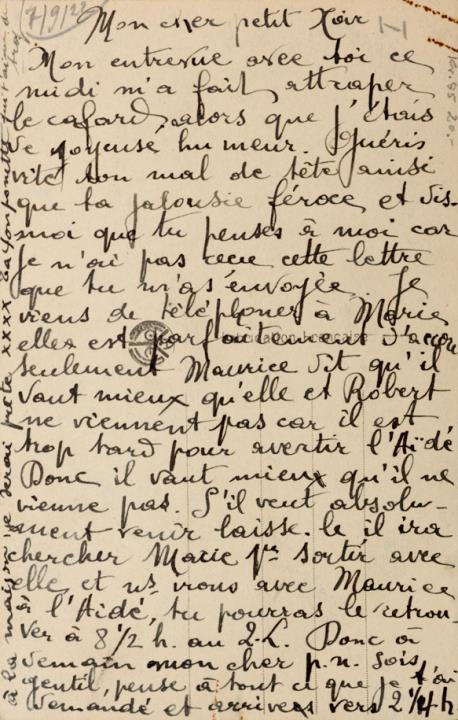 7/9/23
Mon cher petit Noir
Mon entrevue avec toi ce
midi m'a fait attraper
le cafard, alors que j'étais
de joyeuse humeur. Guéris
vite ton mal de tête ainsi
que ta jalousie féroce et dis-
moi que tu penses à moi car
je n'ai pas cette lettre
que tu m'as envoyée. Je
viens de téléphoner à Marie
elle est parfaitement d'accord
seulement Maurice dit qu'il
vaut mieux qu'elle et Robert
ne viennent pas car il est
trop tard pour avertir l'Aïdé
Donc il vaut mieux qu'il ne
vienne pas. S'il veut absolu-
ment venir laisse-le il ira
chercher Marie pr sortir avec
elle et ns irons avec Maurice
à l'Aïdé, tu pourras le retrou-
ver à 8 1/2 h. au 2.L. Donc à
demain mon cher p.n. sois
gentil, pense à tout ce que je t'ai
demandé et arrivers vers 2 1/4 h
à la maison je serai prête xxxx